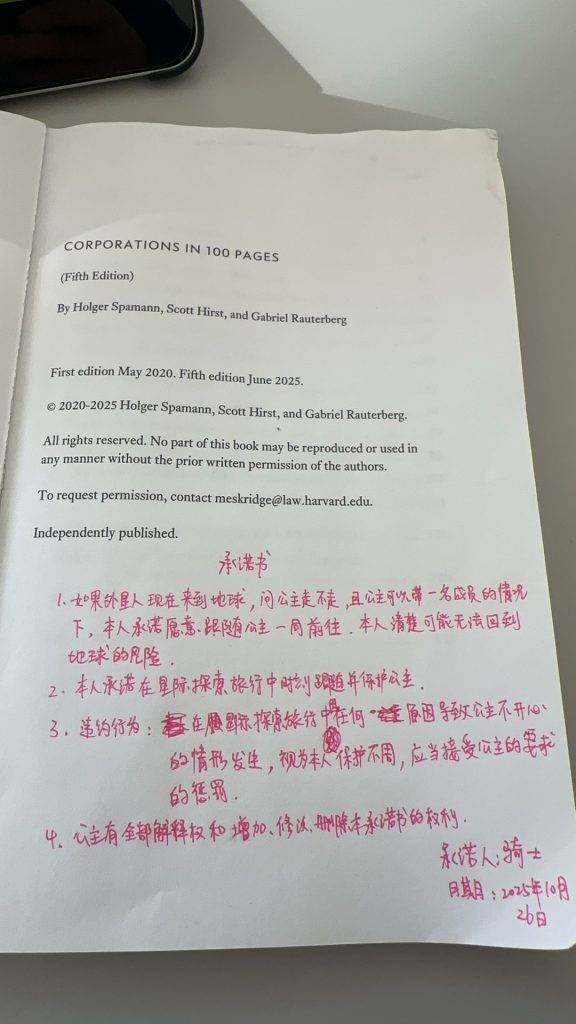 CORPORATIONS IN 100 PAGES
(Fifth Edition)
By Holger Spamann, Scott Hirst, and Gabriel Rauterberg
First edition May 2020. Fifth edition June 2025.
© 2020-2025 Holger Spamann, Scott Hirst, and Gabriel Rauterberg.
All rights reserved. No part of this book may be reproduced or used in
any manner without the prior written permission of the authors.
To request permission, contact meskridge@law.harvard.edu.
Independently published.
承诺书
1. 如果外星人现在来到地球，问公主走不走，且公主可以带一名成员的情况
下，本人承诺愿意跟随公主一同前往．本人清楚可能无法回到
地球的危险．
2. 本人承诺在星际探索旅行中时刻跟随并保护公主．
3. 违约行为：在星际探索旅行中因任何原因导致公主不开心
的情形发生，视为本人保护不周，应当接受公主的要求
的惩罚．
4. 公主有全部解释权和增加、修改、删除本承诺书的权利．
承诺人：骑士
日期：2025年10月
26日